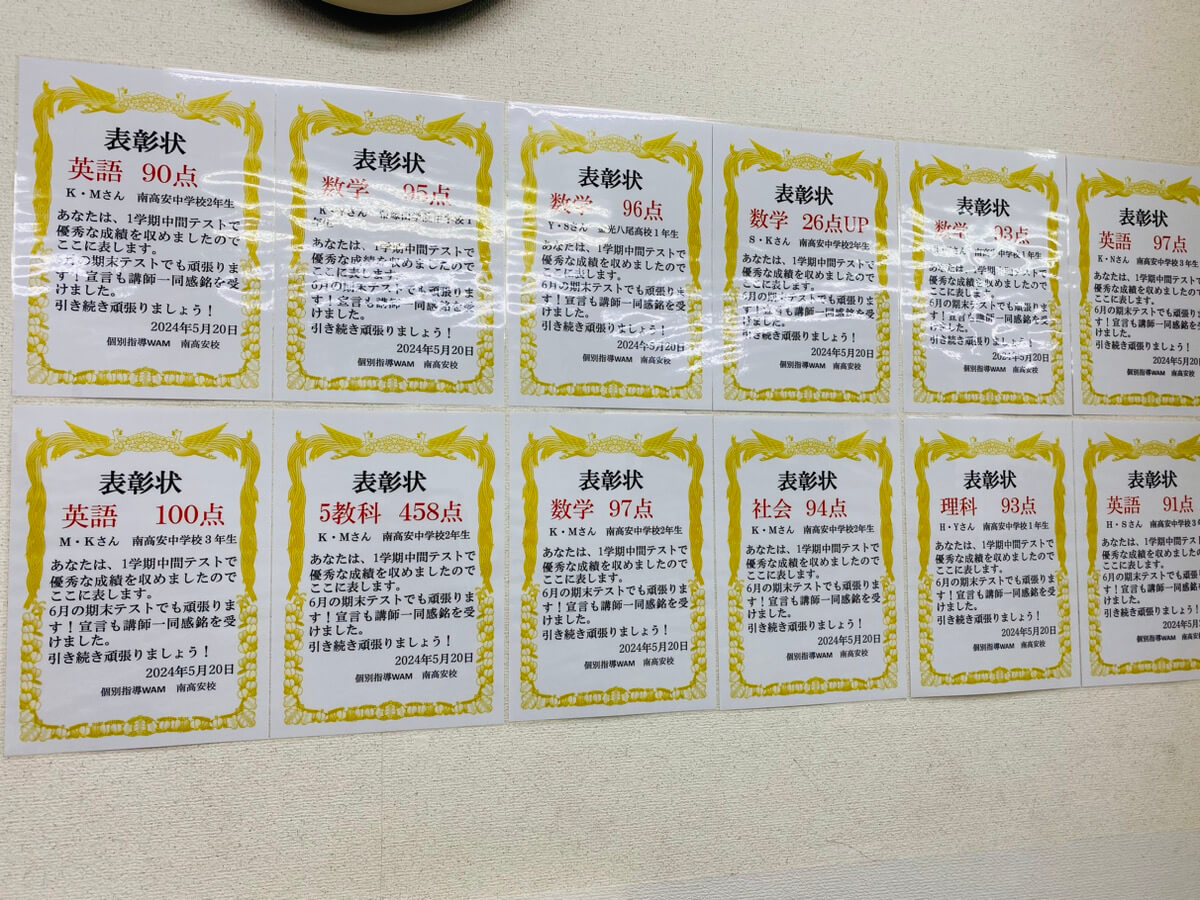 表彰状
英語 90点
K・Mさん 南高安中学校2年生
あなたは、1学期中間テストで
優秀な成績を収めましたので
ここに表します。
月の期末テストでも頑張りま
す！宣言も講師一同感銘を受
けました。
引き続き頑張りましょう！
2024年5月20日
個別指導WAM 南高安校
表彰状
数学 95点
あなたは、1学期中間テストで
優秀な成績を収めましたので
ここに表します。
6月の期末テストでも頑張りま
す！宣言も講師一同感銘を受
けました。
引き続き頑張りましょう！
2024年5月20日
個別指導WAM 南高安校
表彰状
数学 96点
Y・Sさん 光八尾高校１年生
あなたは、1学期中間テストで
優秀な成績を収めましたので
ここに表します。
6月の期末テストでも頑張りま
す！宣言も講師一同感銘を受
けました。
引き続き頑張りましょう！
2024年5月20日
個別指導WAM 南高安校
表彰状
数学 26点UP
S・Kさん 南高安中学校2年生
あなたは、1学期中間テストで
優秀な成績を収めましたので
ここに表します。
6月の期末テストでも頑張りま
す！宣言も講師一同感銘を受
けました。
引き続き頑張りましょう！
2024年5月20日
個別指導WAM 南高安校
表彰状
数学 93点
南高安中学校１年生
あなたは、1学期中間テストで
優秀な成績を収めましたので
ここに表します。
6月の期末テストでも頑張りま
す！宣言も講師一同感銘を受
けました。
引き続き頑張りましょう！
2024年5月20日
個別指導WAM 南高安校
表彰状
英語 97点
K・Nさん 南高安中学校３年生
あなたは、1学期中間テスト
優秀な成績を収めましたの
ここに表します。
6月の期末テストでも頑張り
す！宣言も講師一同感銘を
けました。
引き続き頑張りましょう！
2024年5月20
個別指導WAM 南高安校
表彰状
英語 100点
M・Kさん 南高安中学校３年生
あなたは、1学期中間テストで
優秀な成績を収めましたので
ここに表します。
6月の期末テストでも頑張りま
す！宣言も講師一同感銘を受
けました。
引き続き頑張りましょう！
2024年5月20日
個別指導WAM 南高安校
表彰状
5教科 458点
K・Mさん 南高安中学校2年生
あなたは、1学期中間テストで
優秀な成績を収めましたので
ここに表します。
6月の期末テストでも頑張りま
す！宣言も講師一同感銘を受
けました。
引き続き頑張りましょう！
2024年5月20日
個別指導WAM 南高安校
表彰状
数学 97点
K・Mさん 南高安中学校2年生
あなたは、1学期中間テストで
優秀な成績を収めましたので
ここに表します。
6月の期末テストでも頑張りま
す！宣言も講師一同感銘を受
けました。
引き続き頑張りましょう！
2024年5月20日
個別指導WAM 南高安校
表彰状
社会 94点
K・Mさん 南高安中学校2年生
あなたは、1学期中間テストで
優秀な成績を収めましたので
ここに表します。
6月の期末テストでも頑張りま
す！宣言も講師一同感銘を受
けました。
引き続き頑張りましょう！
2024年5月20日
個別指導WAM 南高安校
表彰状
理科 93点
H・Yさん 南高安中学校１年生
あなたは、1学期中間テストで
優秀な成績を収めましたので
ここに表します。
6月の期末テストでも頑張りま
す！宣言も講師一同感銘を受
けました。
引き続き頑張りましょう！
2024年5月20日
個別指導WAM 南高安校
表彰状
英語 91点
H・Sさん 南高安中学校３年
あなたは、1学期中間テスト
優秀な成績を収めましたの
ここに表します。
6月の期末テストでも頑張り
す！宣言も講師一同感銘を
けました。
引き続き頑張りましょう！
2024年5月
個別指導WAM 南高安